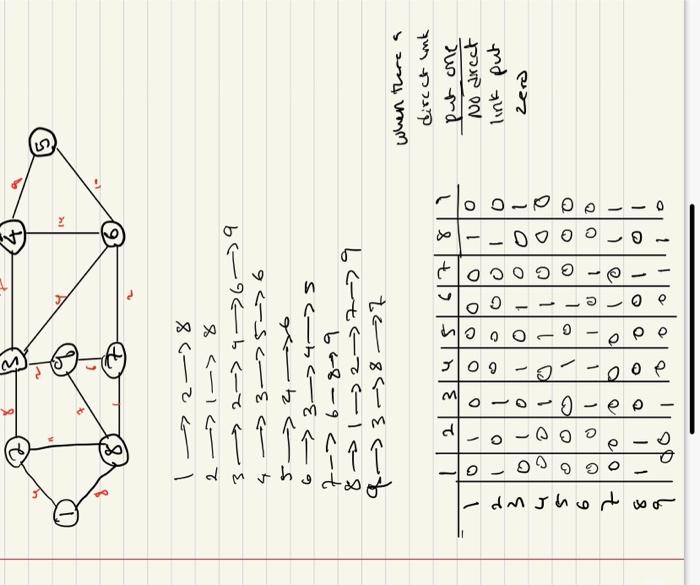 5
4
6
3
9
7
2
8
1
1 → 2 → 8
2 → 1 → 8
3 → 2 → 4 → 6 → 9
4 → 3 → 5 → 6
5 → 4 → 6
6 → 3 → 4 → 5
7 → 6 - 8 → 9
8 → 1 → 2 → 7 → 9
9 → 3 → 8 → 7
when there s
direct link
put one
No direct
link put
zero
1 2 3 4 5 6 7 8 9
1 0 1 0 0 0 0 0 1 0
2 1 0 1 0 0 0 0 1 0
3 0 1 0 1 0 1 0 0 1
4 0 0 1 0 1 1 0 0 0
5 0 0 0 1 0 1 0 0 0
6 0 0 1 1 1 0 1 0 0
7 0 0 0 0 0 1 0 1 1
8 1 1 0 0 0 0 1 0 1
9 0 0 1 0 0 0 1 1 0